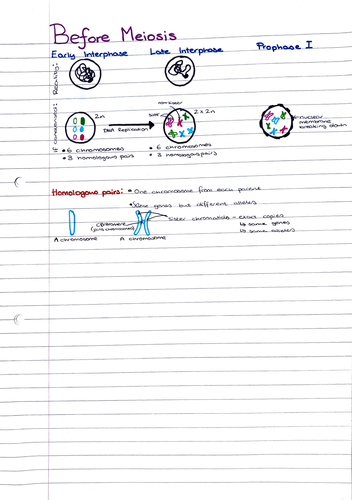 Before Meiosis
Early Interphase Late Interphase Prophase I
Reality:
If condensed:
2n
DNA Replication
2 x 2n
nuclear
membrane
breaking down
• 6 chromosomes
• 3 homologous pairs
• 6 chromosomes
• 3 homologous pairs
Homologous pairs: • One chromosome from each parent
• Same genes but different alleles
Centromere
Sister chromatids - exact copies
↳ same genes
↳ same alleles
A chromosome A chromosome